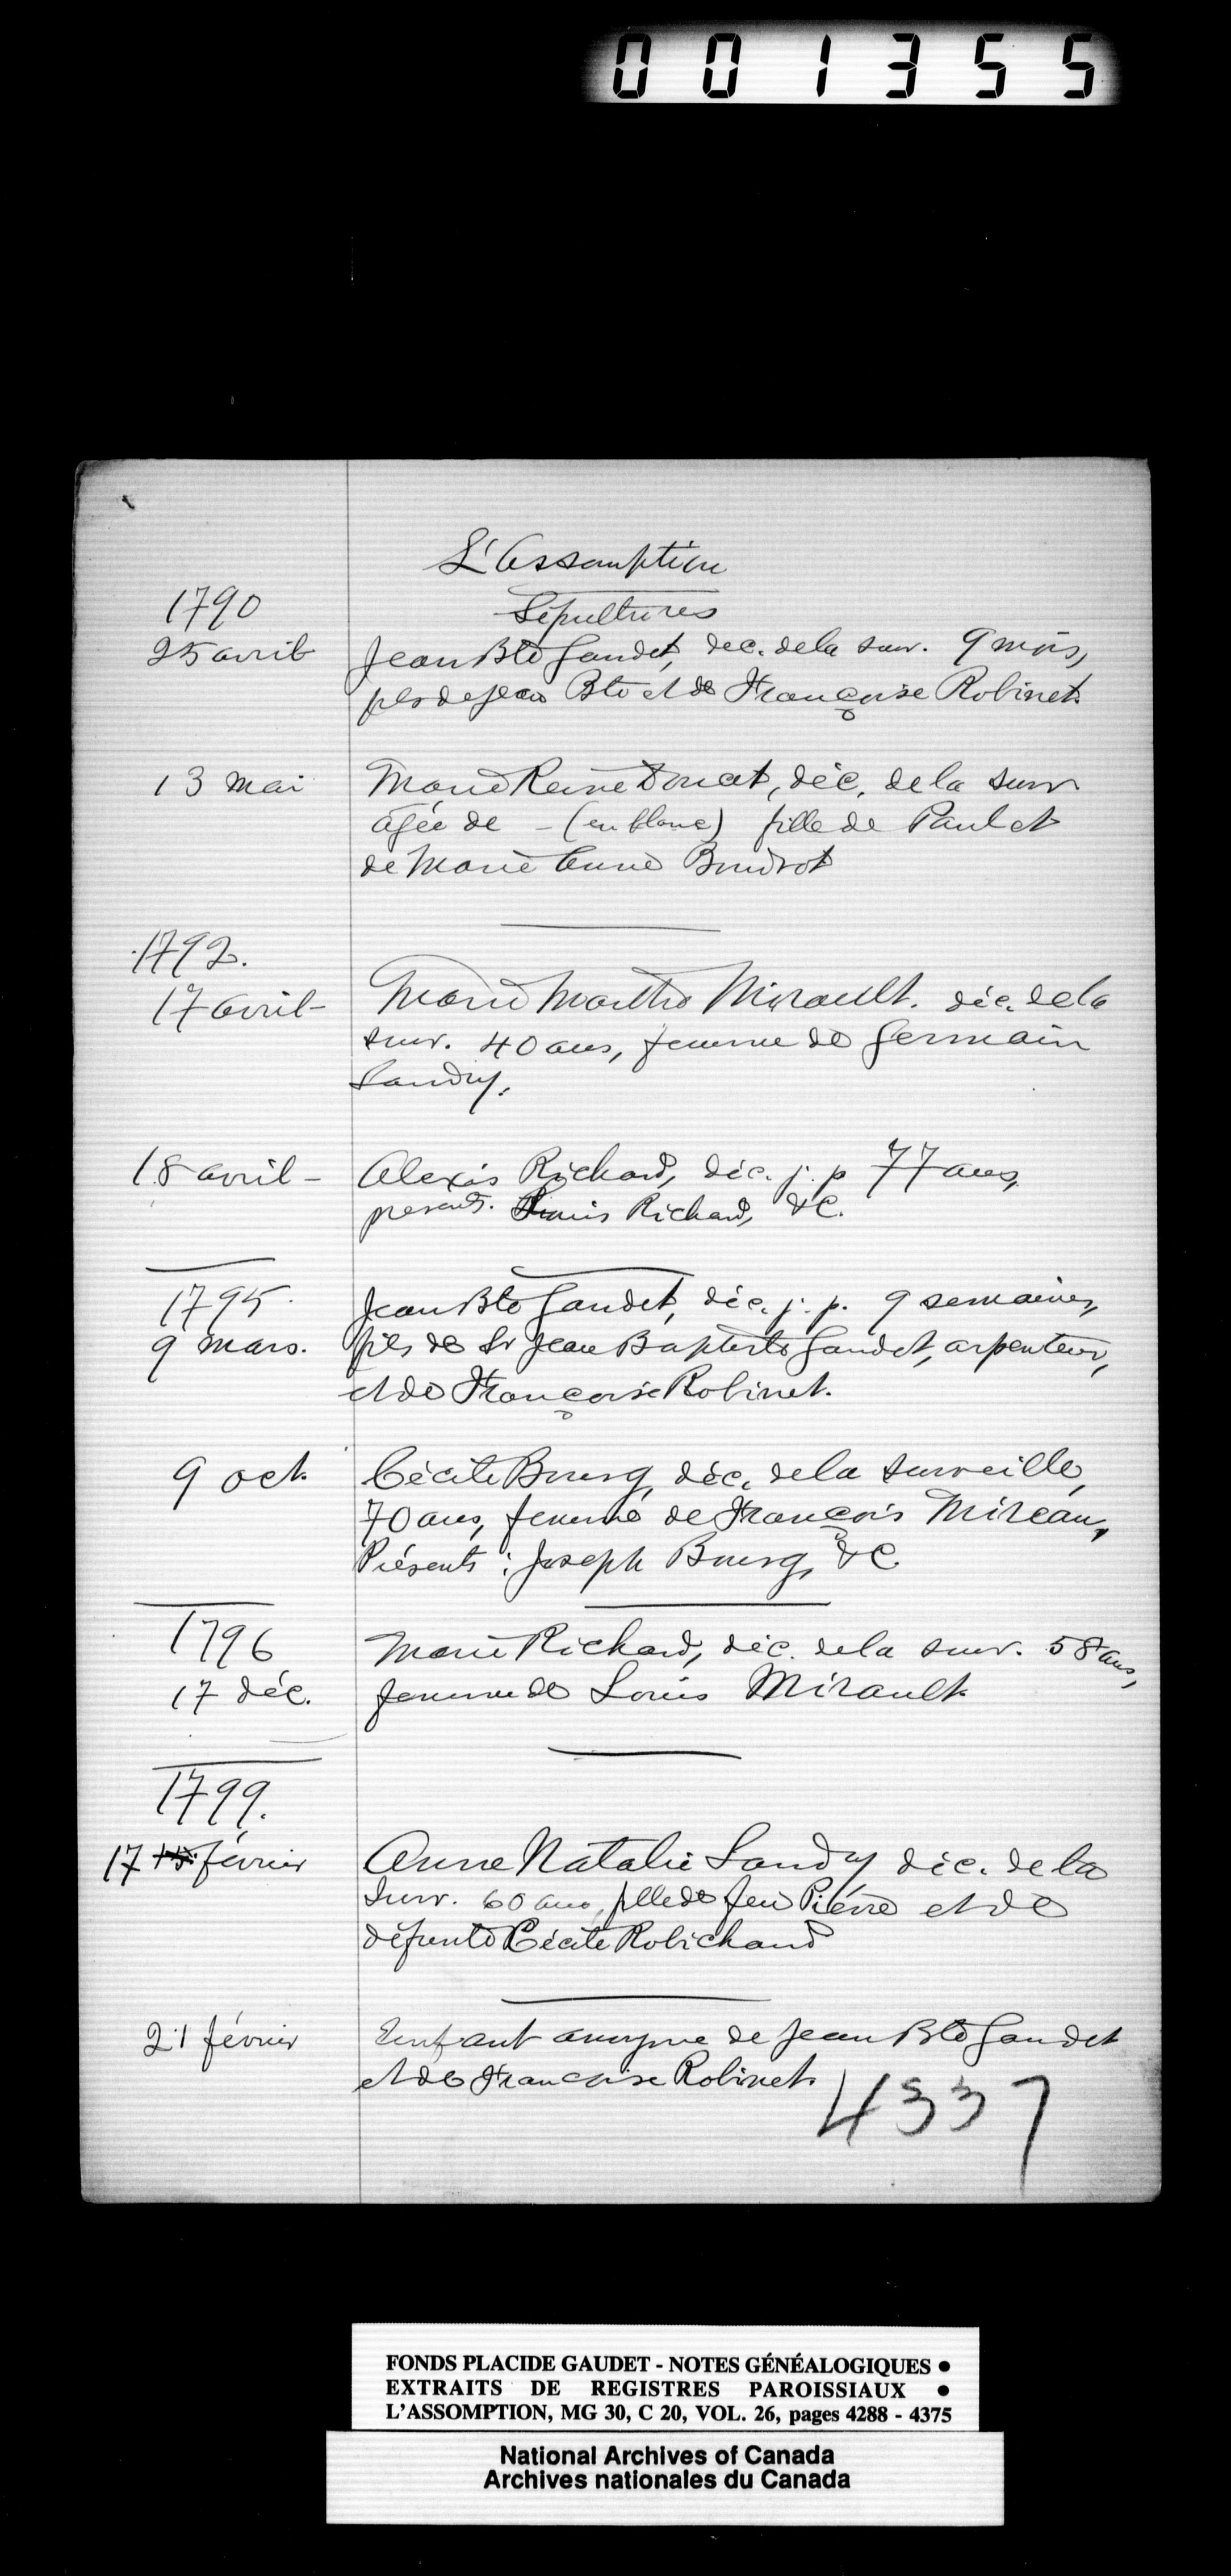 001355
L'Assomption
1790
Sépultures
25 avril
Jean Bte Gaudet, déc. de la surv. 9 mois,
fils de Jean Bte et de Françoise Robinet.
13 mai
Marie Reine Doucet, déc. de la surv
agée de - (en blanc) fille de Paul et
de Marie Anne Boudrot
1792.
17 avril -
Marie Marthe Mirault. déc. de la
surv. 40 ans, femme de Germain
Landry.
18 avril -
Alexis Richard, déc. j. p 77 ans,
présents. Louis Richard, &c.
1795
Jean Bte Gaudet, déc. j. p. 9 semaines,
9 mars.
fils de Sr Jean Baptiste Gaudet, arpenteur,
et de Françoise Robinet.
9 oct.
Cécile Bourg, déc. de la surveille,
70 ans, femme de François Mireau,
Présents : Joseph Bourg, &c
1796
Marie Richard, déc. de la surv. 58 ans,
17 déc.
femme de Louis Mirault
1799.
17 15 février
Anne Natalie Landry déc. de la
surv. 60 ans, fille de feu Pierre et de
défunte Cécile Robichaud
21 février
Enfant anonyme de Jean Bte Gaudet
et de Francoise Robinet.
4337
FONDS PLACIDE GAUDET - NOTES GÉNÉALOGIQUES •
EXTRAITS DE REGISTRES PAROISSIAUX •
L'ASSOMPTION, MG 30, C 20, VOL. 26, pages 4288 - 4375
National Archives of Canada
Archives nationales du Canada